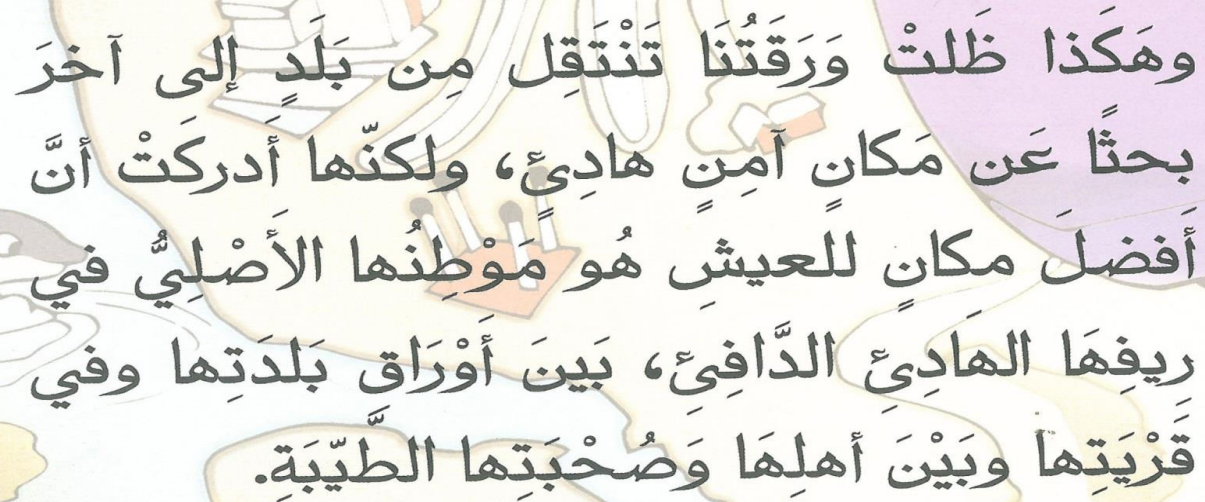 وهَكَذا ظَلتْ وَرَقتُنَا تَنْتَقِل مِن بَلَدٍ إلى آخرَ
بحثًا عَن مَكانٍ آمِنٍ هادِئٍ، ولكنّها أَدركَتْ أنَّ
أَفضلَ مكانٍ للعيشِ هُو مَوْطِنُها الأَصْلِيُّ في
رِيفِهَا الهَادِئِ الدَّافِئِ، بَينَ أَوْرَاقِ بَلدَتِها وفي
قَرْيَتِها وبَيْنَ أهلِهَا وَصُحْبَتِها الطَّيّبَةِ.